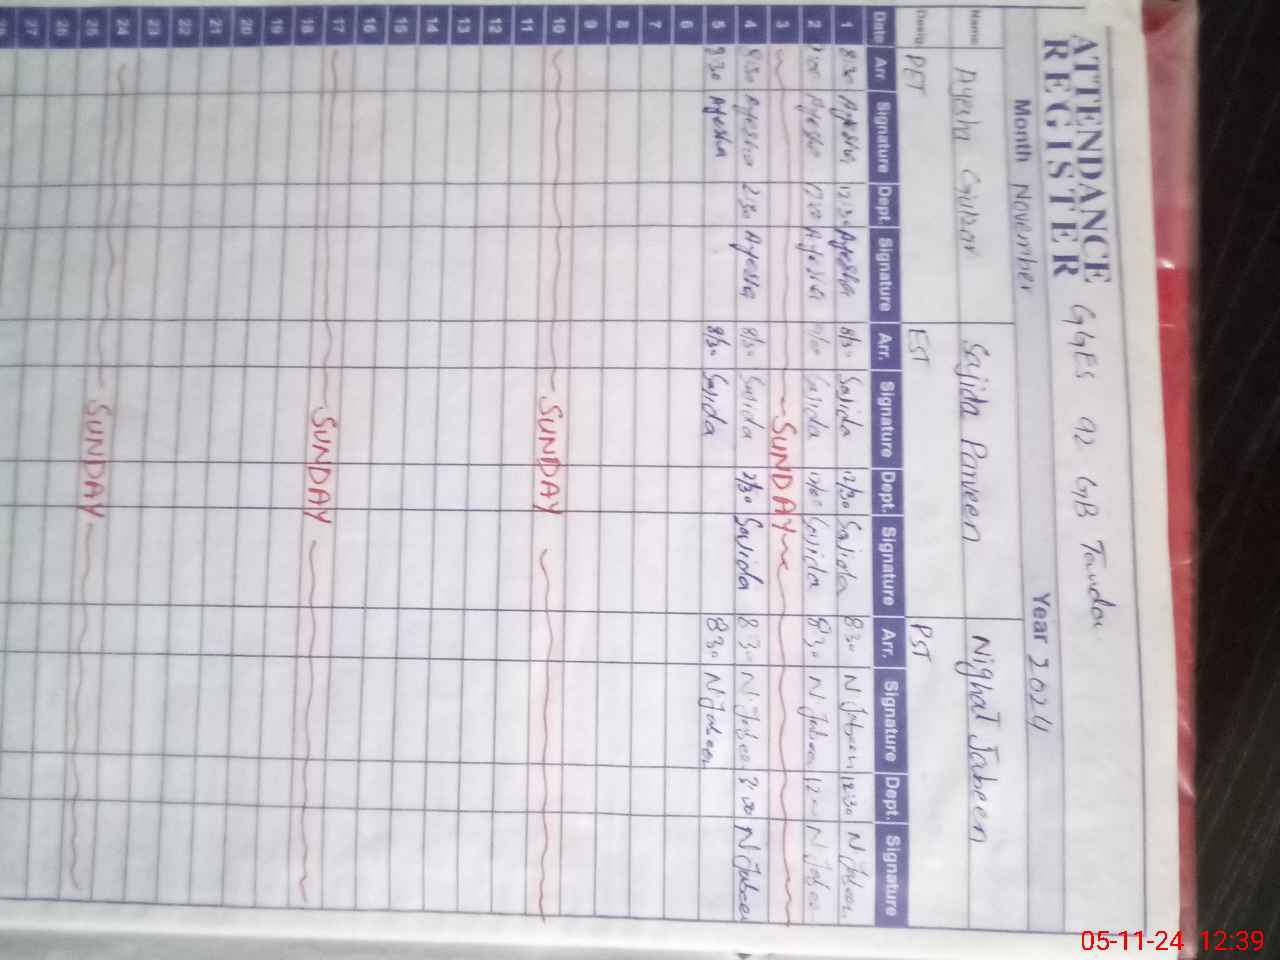 ATTENDANCE REGISTER GGES 92 GB
Month November Year 2024
Name Ayesha Gulzar Sajida Parveen Nighat Jabeen
Desig PET EST PST
Date Arr Signature Dept. Signature Arr. Signature Dept. Signature Arr. Signature Dept. Signature
1 8:30 Ayesha 12:30 Ayesha 8/30 Sajida 12/30 Sajida 830 N Jabeen 12:30 N Jabeen
2 Ayesha Ayesha Sajida Sajida 830 N Jabeen N Jabeen
3 SUNDAY
4 8:30 Ayesha 2:30 Ayesha 8/30 Sajida 2/30 Sajida 830 N Jabeen N Jabeen
5 830 Ayesha 8/30 Sajida 830 N Jabeen
6
7
8
9
10 SUNDAY
11
12
13
14
15
16
17 SUNDAY
18
19
20
21
22
23
24 SUNDAY
25
26
27
05-11-24 12:39